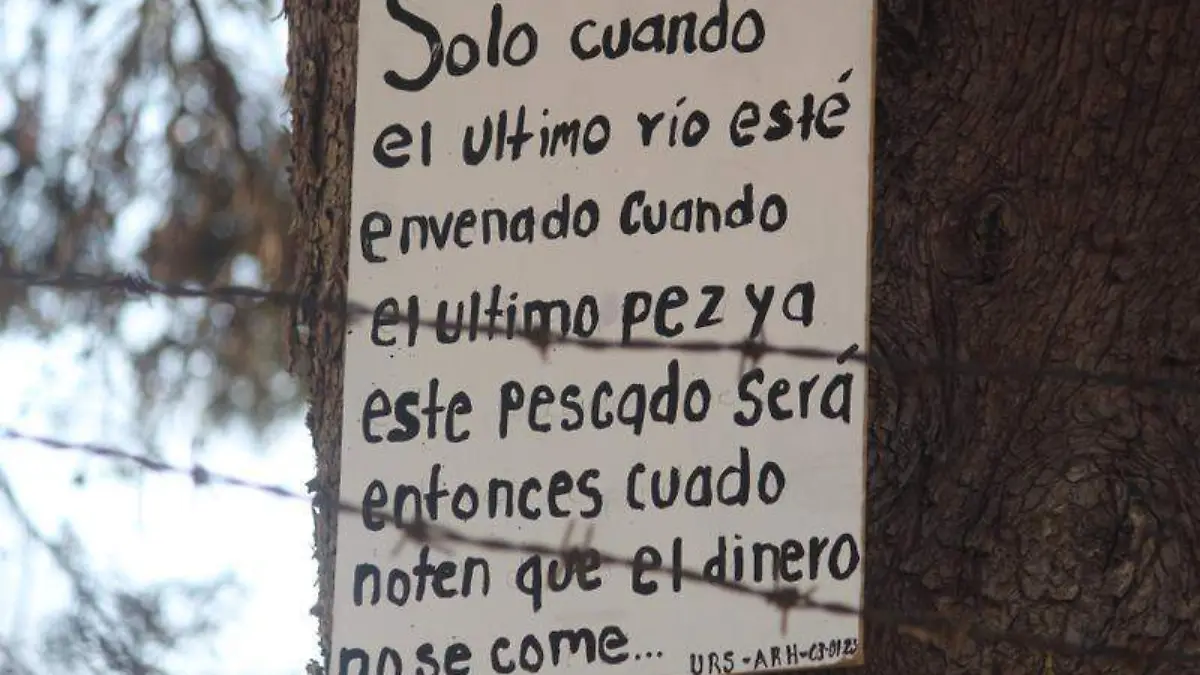 Solo cuando
el ultimo río esté
envenado cuando
el ultimo pez ya
este pescado será
entonces cuado
noten que el dinero
no se come...
URS-ARH-C3-0123